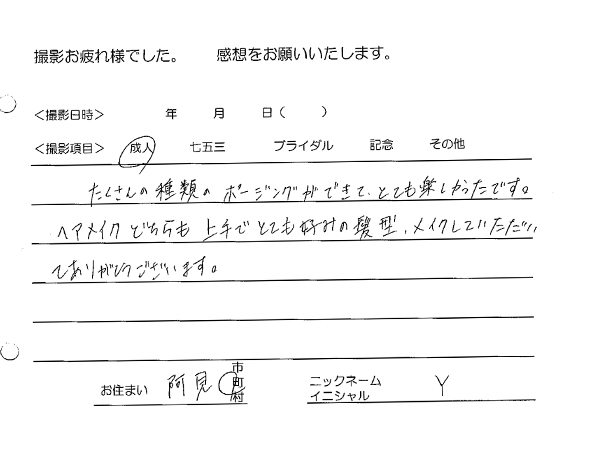 撮影お疲れ様でした。 感想をお願いいたします。
＜撮影日時＞ 年 月 日（ ）
＜撮影項目＞ 成人 七五三 ブライダル 記念 その他
たくさんの種類のポージングができて、とても楽しかったです。
ヘアメイクどちらも上手でとても好みの髪型、メイクしていただい
てありがとうございます。
お住まい 阿見 市町村 ニックネーム イニシャル Y